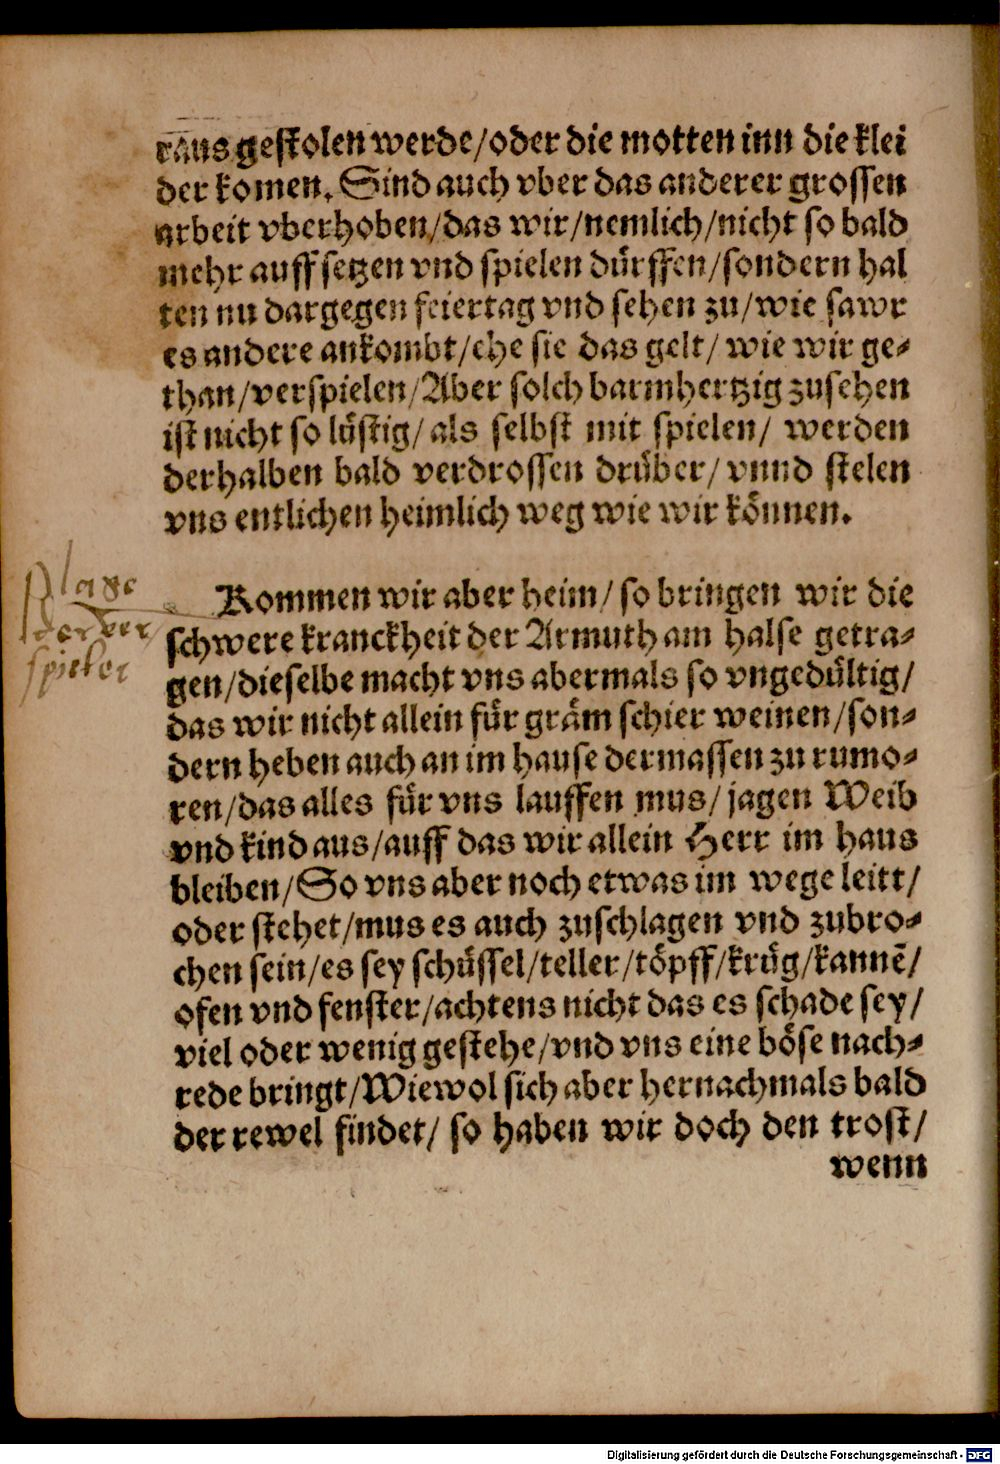 raus gestolen werde/oder die motten inn die klei
der komen. Sind auch vber das anderer grossen
arbeit vberhoben/das wir/nemlich/nicht so bald
mehr auffsetzen vnd spielen dürffen/sondern hal
ten nu dargegen feiertag vnd sehen zu/wie sawr
es andere ankombt/ehe sie das gelt/ wie wir ge-
than/verspielen/Aber solch barmhertzig zusehen
ist nicht so lüstig/ als selbst mit spielen/ werden
derhalben bald verdrossen drüber/ vnnd stelen
vns entlichen heimlich weg wie wir können.
plage
der ver
spieler
Kommen wir aber heim/ so bringen wir die
schwere kranckheit der Armuth am halse getra-
gen/dieselbe macht vns abermals so vngedültig/
das wir nicht allein für gräm schier weinen/son-
dern heben auch an im hause dermassen zu rumo-
ren/das alles für vns lauffen mus/ jagen Weib
vnd kind aus/auff das wir allein Herr im haus
bleiben/So vns aber noch etwas im wege leitt/
oder stehet/mus es auch zuschlagen vnd zubro-
chen sein/es sey schüssel/teller/töpff/krüg/kannē/
ofen vnd fenster/achtens nicht das es schade sey/
viel oder wenig gestehe/vnd vns eine böse nach-
rede bringt/Wiewol sich aber hernachmals bald
der rewel findet/ so haben wir doch den trost/
wenn
Digitalisierung gefördert durch die Deutsche Forschungsgemeinschaft - DFG